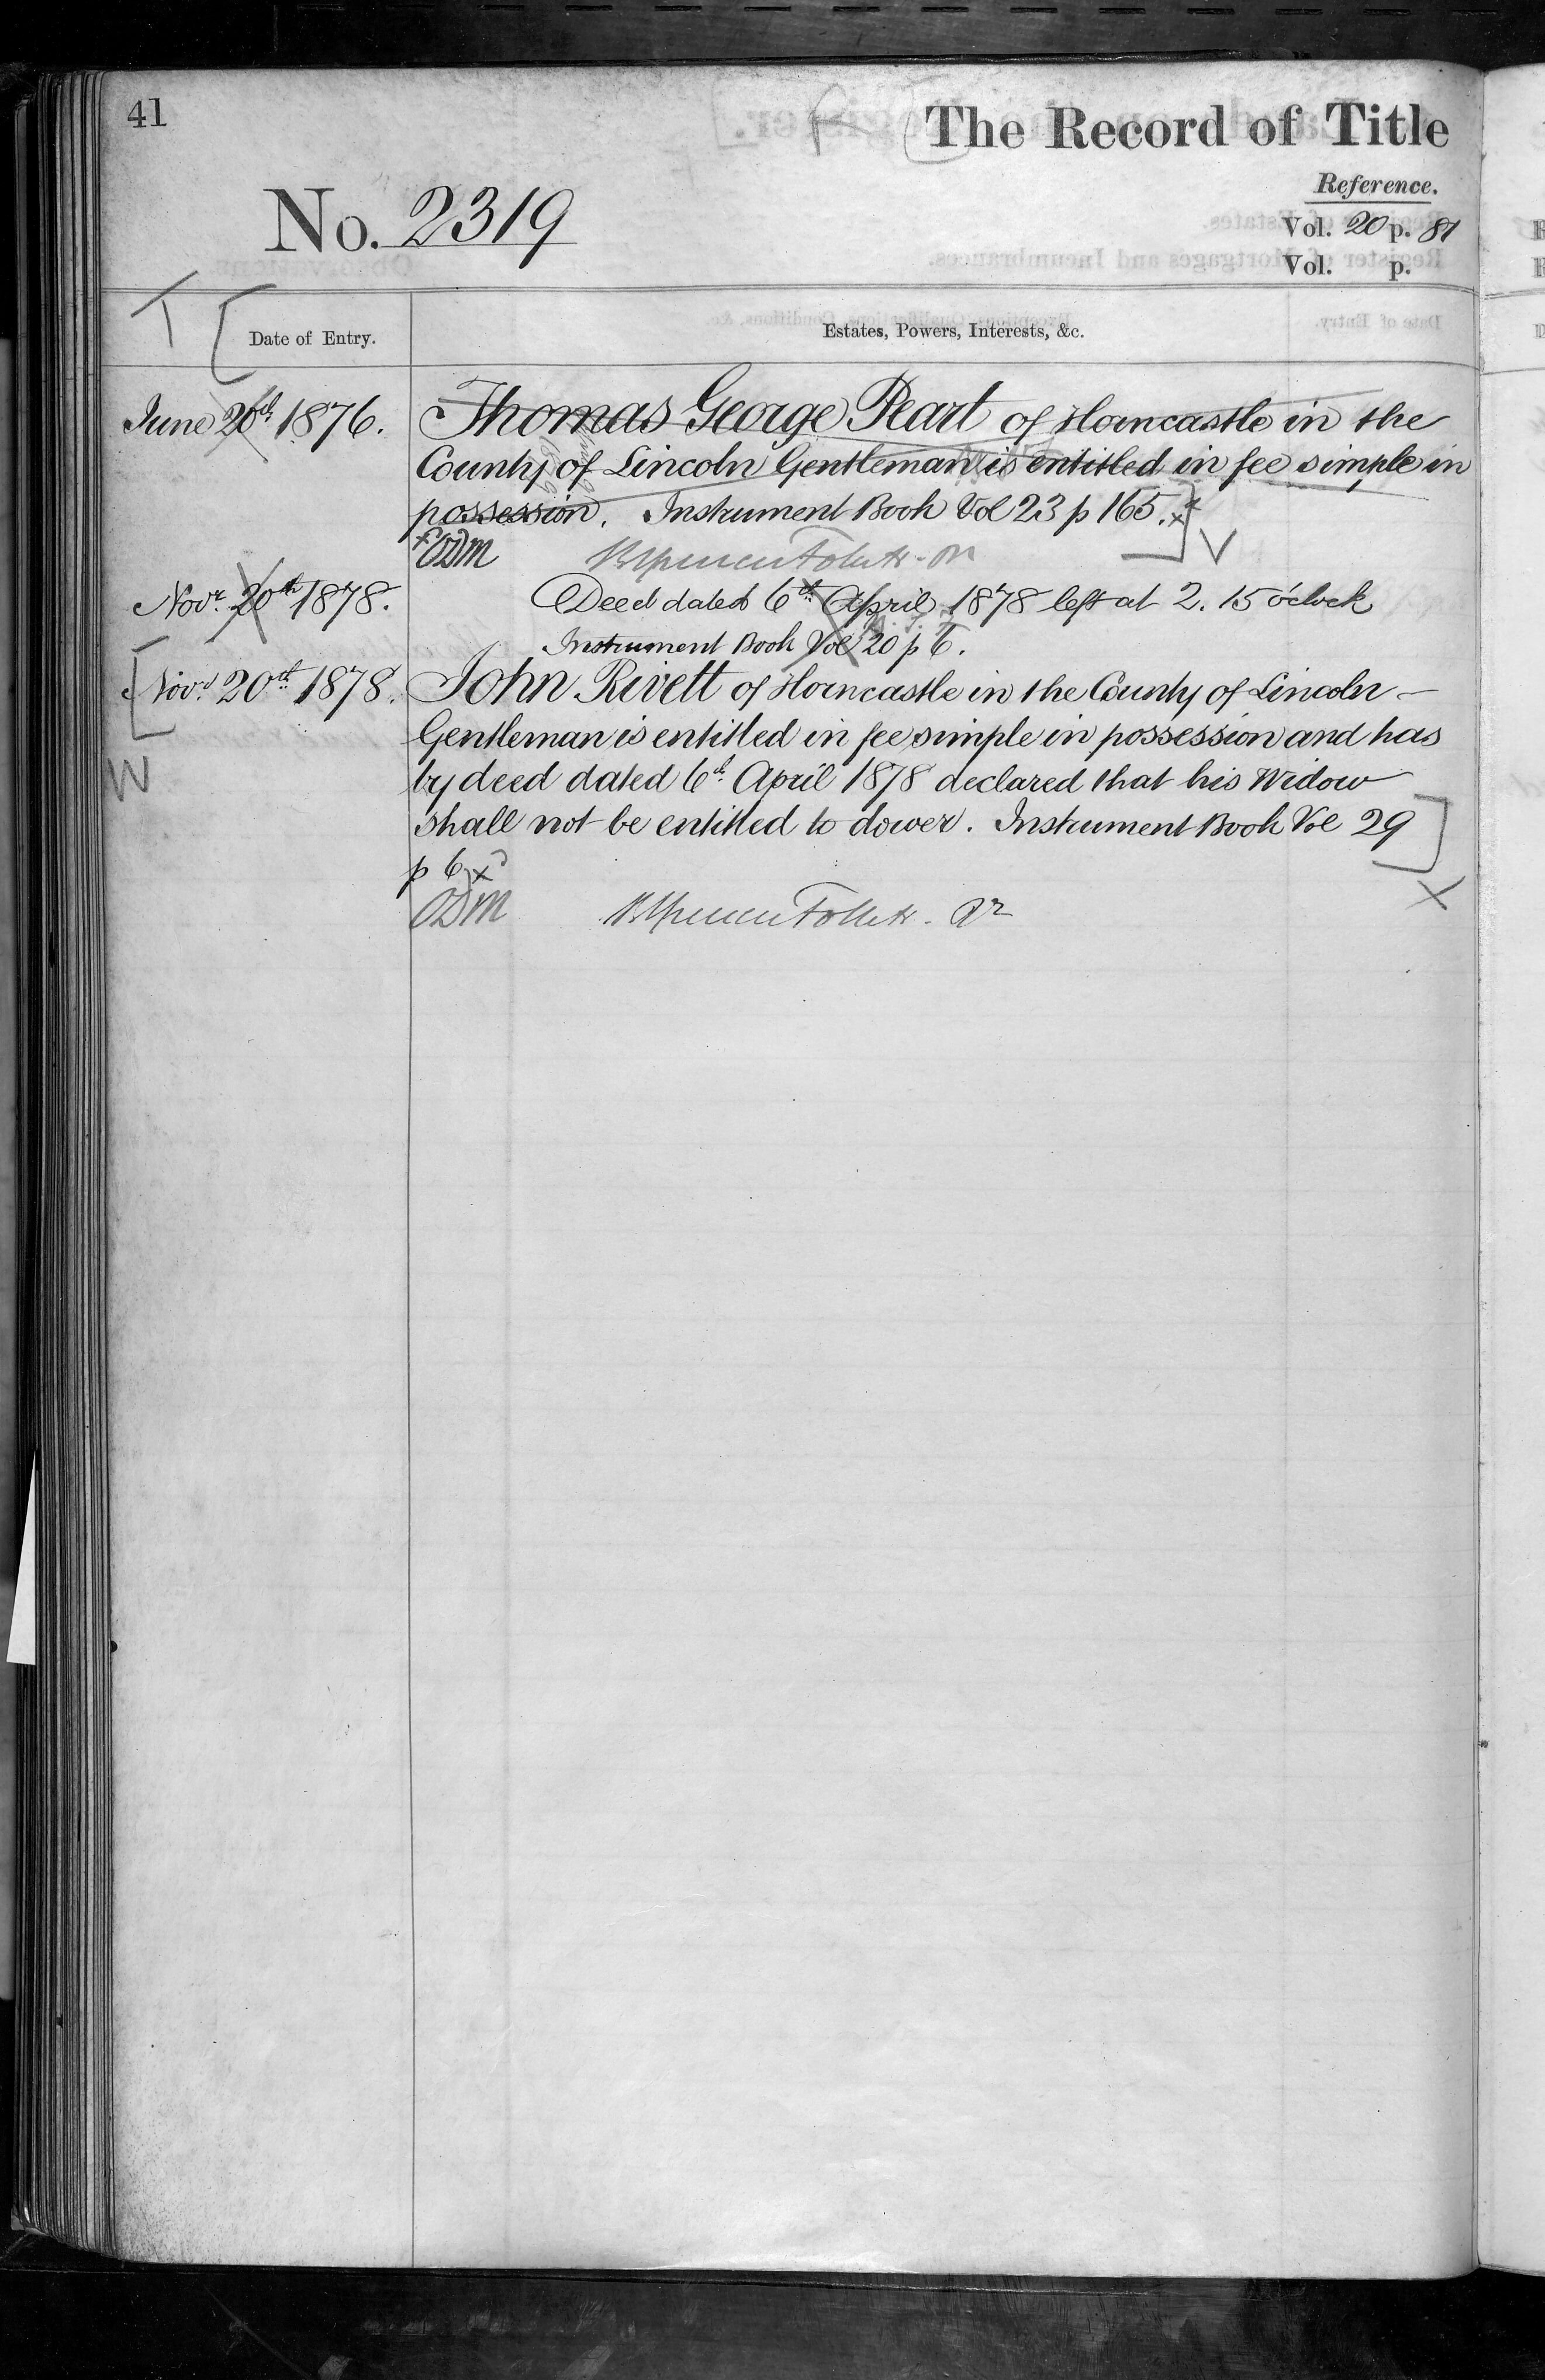 41
The Record of Title
Reference.
No. 2319
Vol. 20 p. 81
Vol. p.
Date of Entry.
Estates, Powers, Interests, &c.
June 20th 1876.
Thomas George Peart of Horncastle in the
County of Lincoln Gentleman is entitled in fee simple in
possession. Instrument Book Vol 23 p 165.
Novr. 20th 1878.
Deed dated 6th April 1878 left at 2. 15 o'clock
Instrument Book Vol 20 p 6.
Novr. 20th 1878.
John Rivett of Horncastle in the County of Lincoln
Gentleman is entitled in fee simple in possession and has
by deed dated 6th April 1878 declared that his Widow
shall not be entitled to dower. Instrument Book Vol 29
p 6